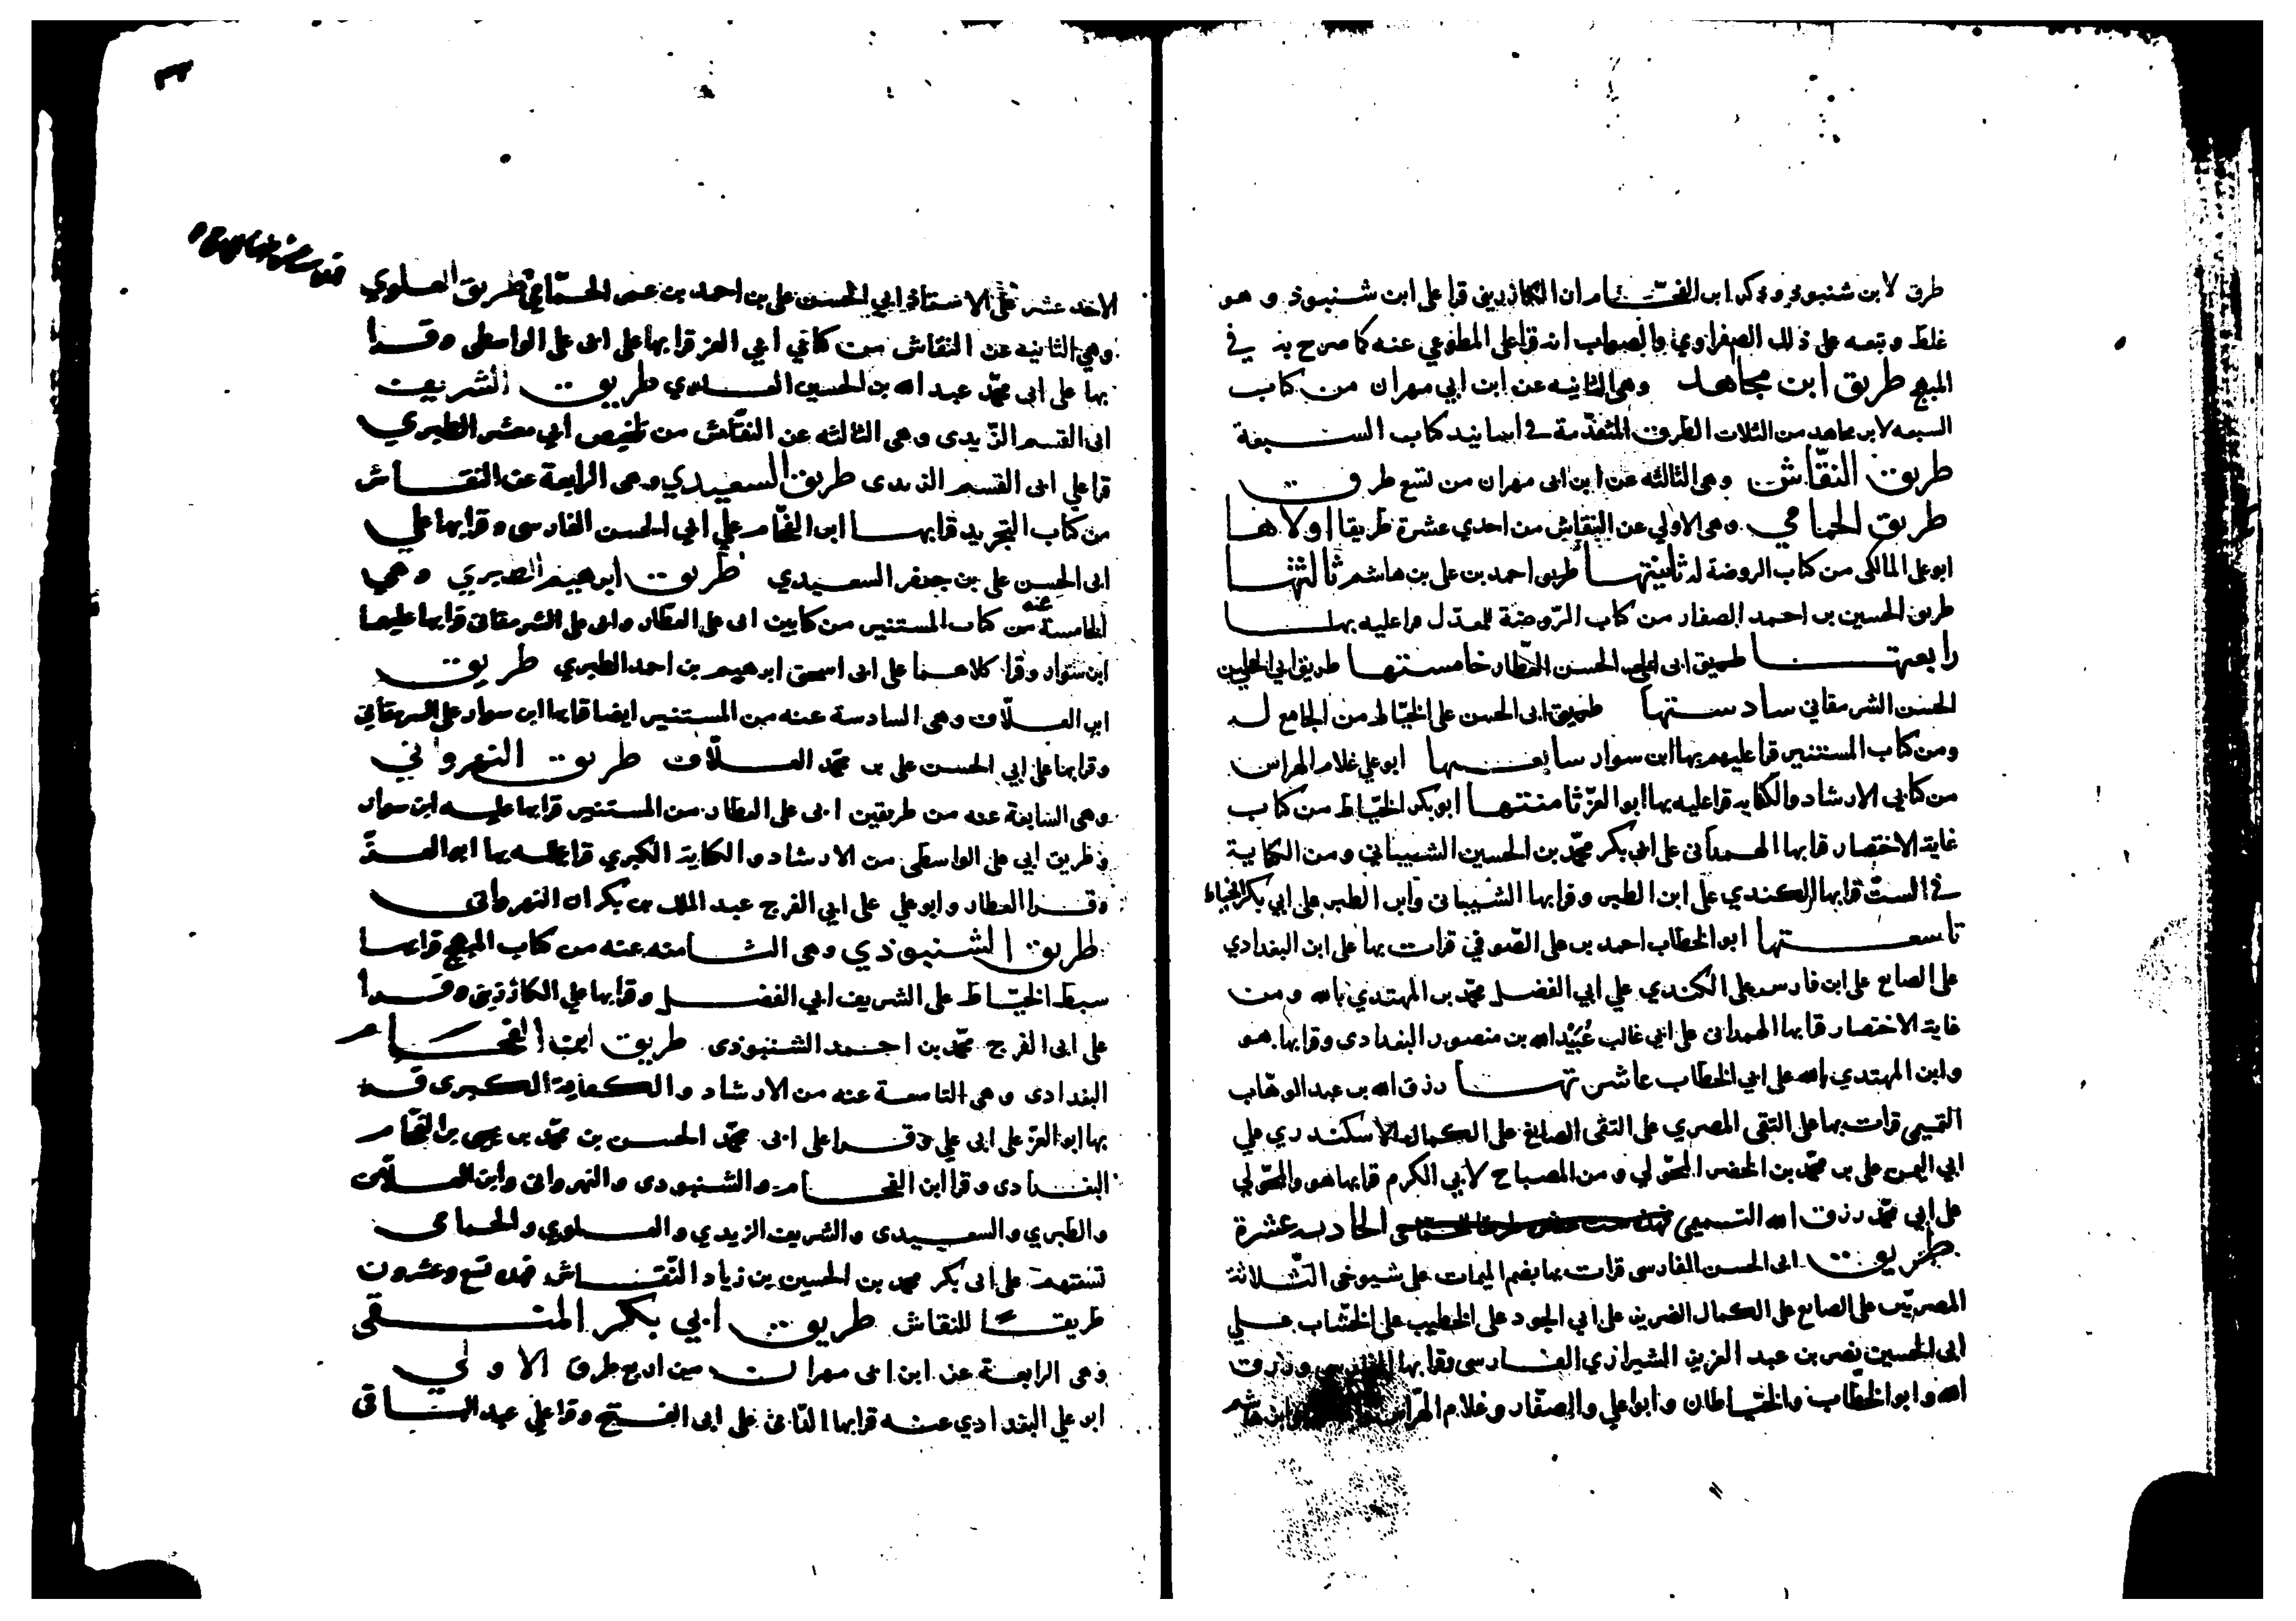 طرق لابن شنبوذ وذكر ابن الفحام ان الكارزيني قرا على ابن شنبوذ وهو
غلط وتبعه على ذلك الصفراوي والصواب انه قرا على المطوعي عنه كما صرح به في
المبهج طريق ابن مجاهد وهي الثانيه عن ابن ابي مهران من كتاب
السبعه لابن مجاهد من الثلاث الطرق المتقدمة في اسانيد كتاب السبعة
طريق النقاش وهي الثالثه عن ابن ابى مهران من تسع طرق
طريق الحمامي وهي الاولي عن النقاش من احدي عشرة طريقا اولاها
ابو على المالكى من كتاب الروضة له ثانيتها طريق احمد بن على بن هاشم ثالثتها
طريق الحسين بن احمد الصفار من كتاب الروضة للمعدل قرا عليه بها
رابعتها طريق ابى على الحسن العطار خامستها طريق ابي على
الحسن الشرمقاني سادستها طريق ابى الحسن على الخياط من الجامع له
ومن كتاب المستنير قرا عليهم بها ابن سوار سابعتها ابو علي غلام الهراس
من كتابي الارشاد والكفايه قرا عليه بها ابو العز ثامنتها ابو بكر الخياط من كتاب
غاية الاختصار قرا بها الهمدانى على ابى بكر محمد بن الحسين الشيبانى ومن الكفاية
في الست قرا بها الكندي على ابن الطبر وقرا بها الشيبانى وابن الطبر على ابي بكر الخياط
تاسعتها ابو الخطاب احمد بن على الصوفي قرات بها على ابن البغدادي
على الصايغ على ابن فارس على الكندي علي ابي الفضل محمد بن المهتدي بالله ومن
غاية الاختصار قرا بها الهمدانى على ابي غالب عبيد الله بن منصور البغدادى وقرا بها هو
وابن المهتدي بالله على ابي الخطاب عاشرتها رزق الله بن عبد الوهاب
التميمى قرات بها على التقى المصري على التقى الصائغ على الكمال الاسكندري علي
ابي اليمن على بن محمد بن الخضر المحولي ومن المصباح لابي الكرم قرا بها هو والمحولي
على ابي محمد رزق الله التميمى الحاديه عشرة
طريق ابى الحسن الفارسى قرات بها بضم الميمات على شيوخى الثلاثة
المصريين على الصايغ على الكمال الضرير على ابى الجود على الخطيب على الخشاب علي
ابى الحسين نصر بن عبد العزيز الشيرازي الفارسى وقرا بها الفارسي ورزق
الله وابو الخطاب والخياطان وابو علي والصفار وغلام الهراس وابن هاشم
الاحد عشر على الاستاذ ابي الحسن على بن احمد بن عمر الحمامي طريق العلوي
وهي الثانيه عن النقاش من كتابي ابي العز قرا بها على ابى على الواسطى وقرا
بها على ابى محمد عبد الله بن الحسين العلوي طريق الشريف
ابى القسم الزيدى وهى الثالثه عن النقاش من تلخيص ابي معشر الطبري
قرا علي ابى القسم الزيدى طريق السعيدي وهى الرابعة عن النقاش
من كتاب التجريد قرا بها ابن الفحام علي ابي الحسن الفارسى وقرا بها على
ابى الحسن على بن جعفر السعيدي طريق ابرهيم الطبري وهي
الخامسة عنه من كتاب المستنير من كتابين ابى على العطار وابى على الشرمقانى قرا بها عليهما
ابن سوار وقرا كلاهما على ابى اسحق ابرهيم بن احمد الطبري طريق
ابن العلاف وهى السادسة عنه من المستنير ايضا قرا بها ابن سوار على الشرمقانى
وقرا بها على ابي الحسن على بن محمد العلاف طريق النهرواني
وهى السابعة عنه من طريقين ابى على العطار من المستنير قرا بها عليه ابن سوار
وطريق ابي على الواسطى من الارشاد والكفاية الكبري قرا عليه بها ابو العز
وقرا العطار وابو علي على ابي الفرج عبد الملك بن بكران النهروانى
طريق الشنبوذي وهى الثامنه عنه من كتاب المبهج قرا بها
سبط الخياط على الشريف ابي الفضل وقرا بها علي الكارزيني وقرا
على ابى الفرج محمد بن احمد الشنبوذى طريق ابن الفحام
البغدادى وهى التاسعة عنه من الارشاد والكفاية الكبرى قرا
بها ابو العز على ابى علي وقرا على ابى محمد الحسن بن محمد بن يحيى بن الفحام
البغدادى وقرا ابن الفحام والشنبوذى والنهروانى وابن العلاف
والطبري والسعيدى والشريف الزيدي والعلوي والحمامى
تسعتهم على ابى بكر محمد بن الحسين بن زياد النقاش فهذه تسع وعشرون
طريقا للنقاش طريق ابي بكر المنقى
وهى الرابعة عن ابن ابى مهران من اربع طرق الاولي
ابو علي البغدادي عنه قرا بها الدانى على ابى الفتح وقرا علي عبد الباقى